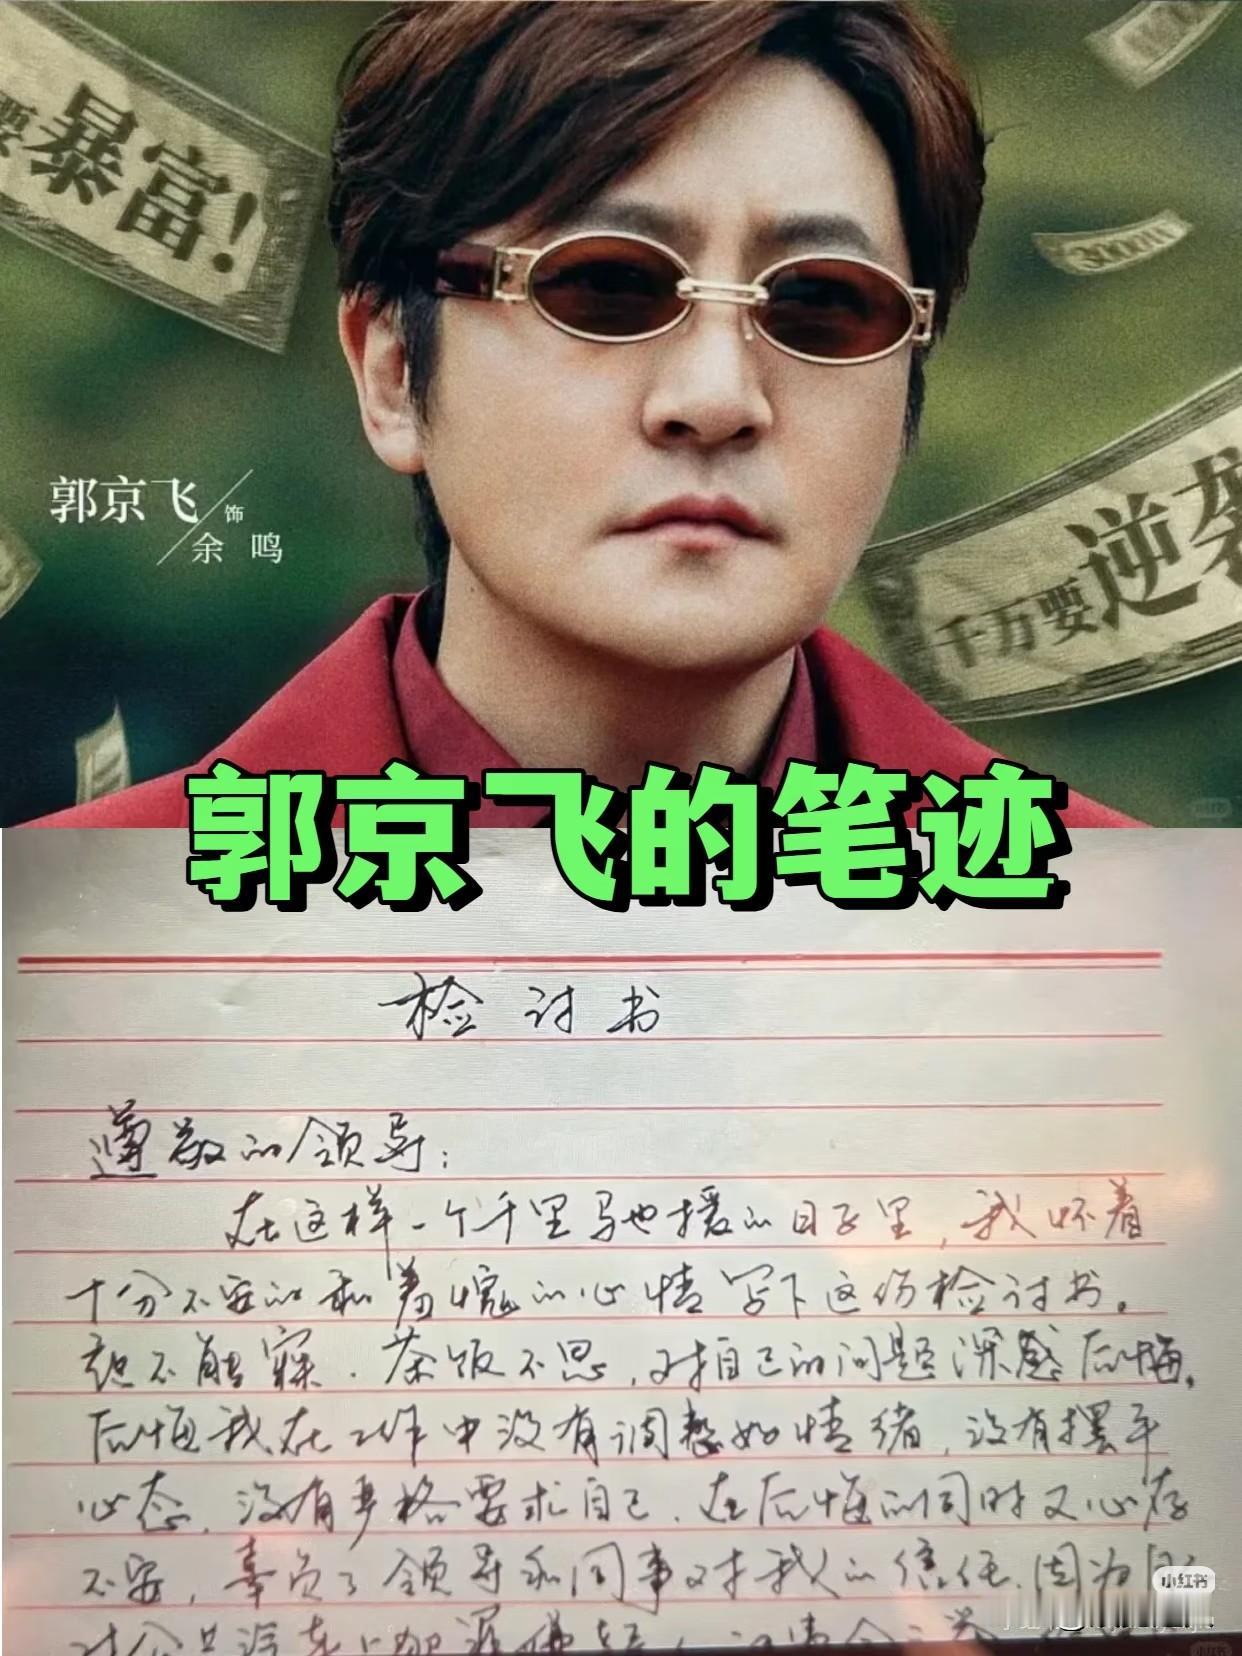 要暴富!
30000
郭京飞
饰
余鸣
千万要逆袭
郭京飞的笔迹
检讨书
尊敬的领导:
在这样一个千里马也援的日子里,我怀着
十分不安的和羞愧的心情写下这份检讨书。
不能寐.茶饭不思,对自己的问题深感后悔。
后悔我在工作中没有调整好情绪,没有摆平
心态,没有严格要求自己.在后悔的同时又心存
不安,辜负了领导和同事对我的信任.因为
小红书